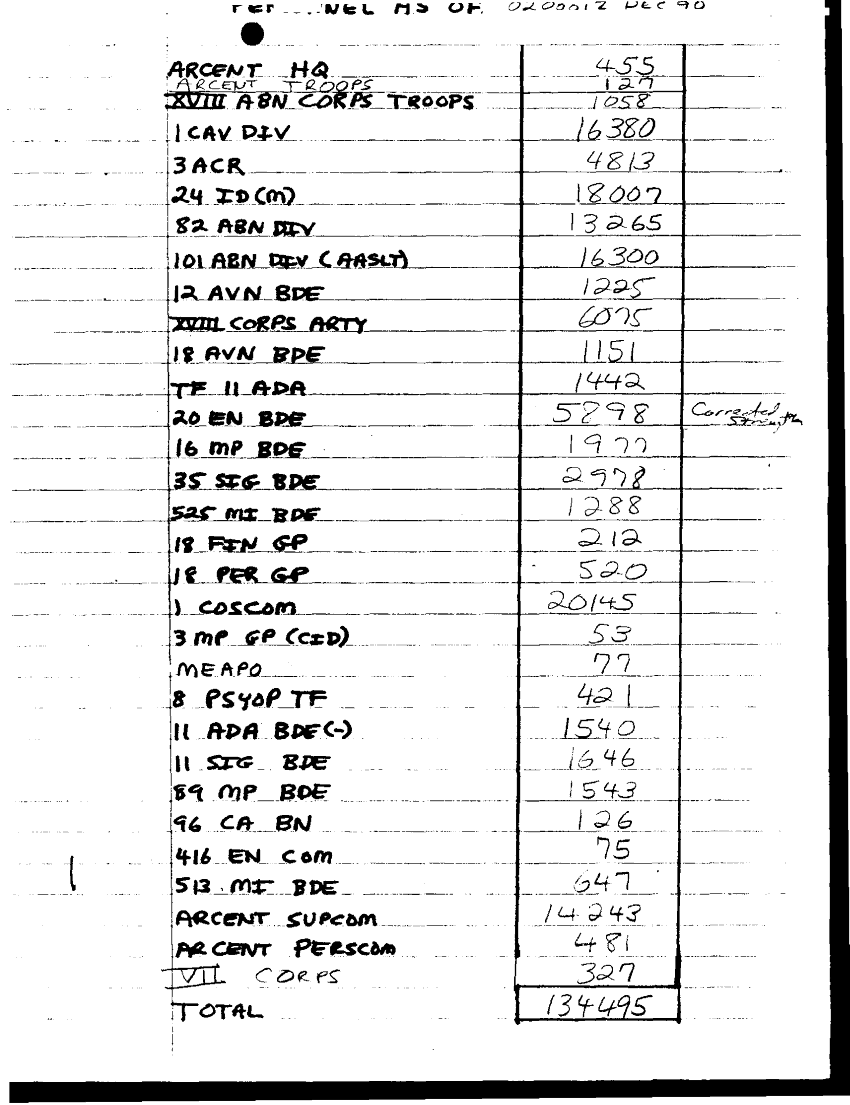 PERSONNEL AS OF 020001Z DEC 90
ARCENT HQ 455
ARCENT TROOPS 127
XVIII ABN CORPS TROOPS 1058
1 CAV DIV 16380
3 ACR 4813
24 ID (M) 18007
82 ABN DIV 13265
101 ABN DIV (AASLT) 16300
12 AVN BDE 1225
XVIII CORPS ARTY 6075
18 AVN BDE 1151
TF 11 ADA 1442
20 EN BDE 5898 Corrected Strength
16 MP BDE 1977
35 SIG BDE 2978
525 MI BDE 1288
18 FIN GP 212
18 PER GP 520
1 COSCOM 20145
3 MP GP (CID) 53
MEAPO 77
8 PSYOP TF 421
11 ADA BDE (-) 1540
11 SIG BDE 1646
89 MP BDE 1543
96 CA BN 126
416 EN COM 75
513 MI BDE 647
ARCENT SUPCOM 14243
ARCENT PERSCOM 481
VII CORPS 327
TOTAL 134495